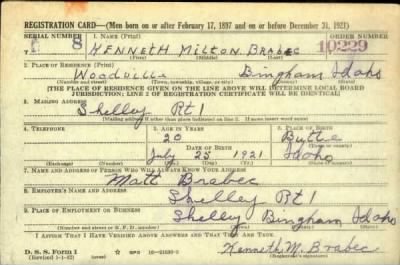 REGISTRATION CARD—(Men born on or after February 17, 1897 and on or before December 31, 1921)
SERIAL NUMBER 1. NAME (Print) ORDER NUMBER
8 KENNETH MILTON BRABEC 10229
(First) (Middle) (Last)
2. PLACE OF RESIDENCE (Print)
Woodville Bingham Idaho
(Number and street) (Town, township, village, or city) (County) (State)
[THE PLACE OF RESIDENCE GIVEN ON THE LINE ABOVE WILL DETERMINE LOCAL BOARD
JURISDICTION; LINE 2 OF REGISTRATION CERTIFICATE WILL BE IDENTICAL]
3. MAILING ADDRESS
Shelley Rt 1
[Mailing address if other than place indicated on line 2. If same insert word same]
4. TELEPHONE 5. AGE IN YEARS 6. PLACE OF BIRTH
20 Butte
DATE OF BIRTH
July 25 1921 Idaho
(Exchange) (Number) (Mo.) (Day) (Yr.) (State or country)
7. NAME AND ADDRESS OF PERSON WHO WILL ALWAYS KNOW YOUR ADDRESS
Matt Brabec
8. EMPLOYER'S NAME AND ADDRESS
Shelley Rt 1
9. PLACE OF EMPLOYMENT OR BUSINESS
Shelley Bingham Idaho
(Number and street or R. F. D. number) (Town) (County) (State)
I AFFIRM THAT I HAVE VERIFIED ABOVE ANSWERS AND THAT THEY ARE TRUE.
D. S. S. Form 1
Kenneth M. Brabec